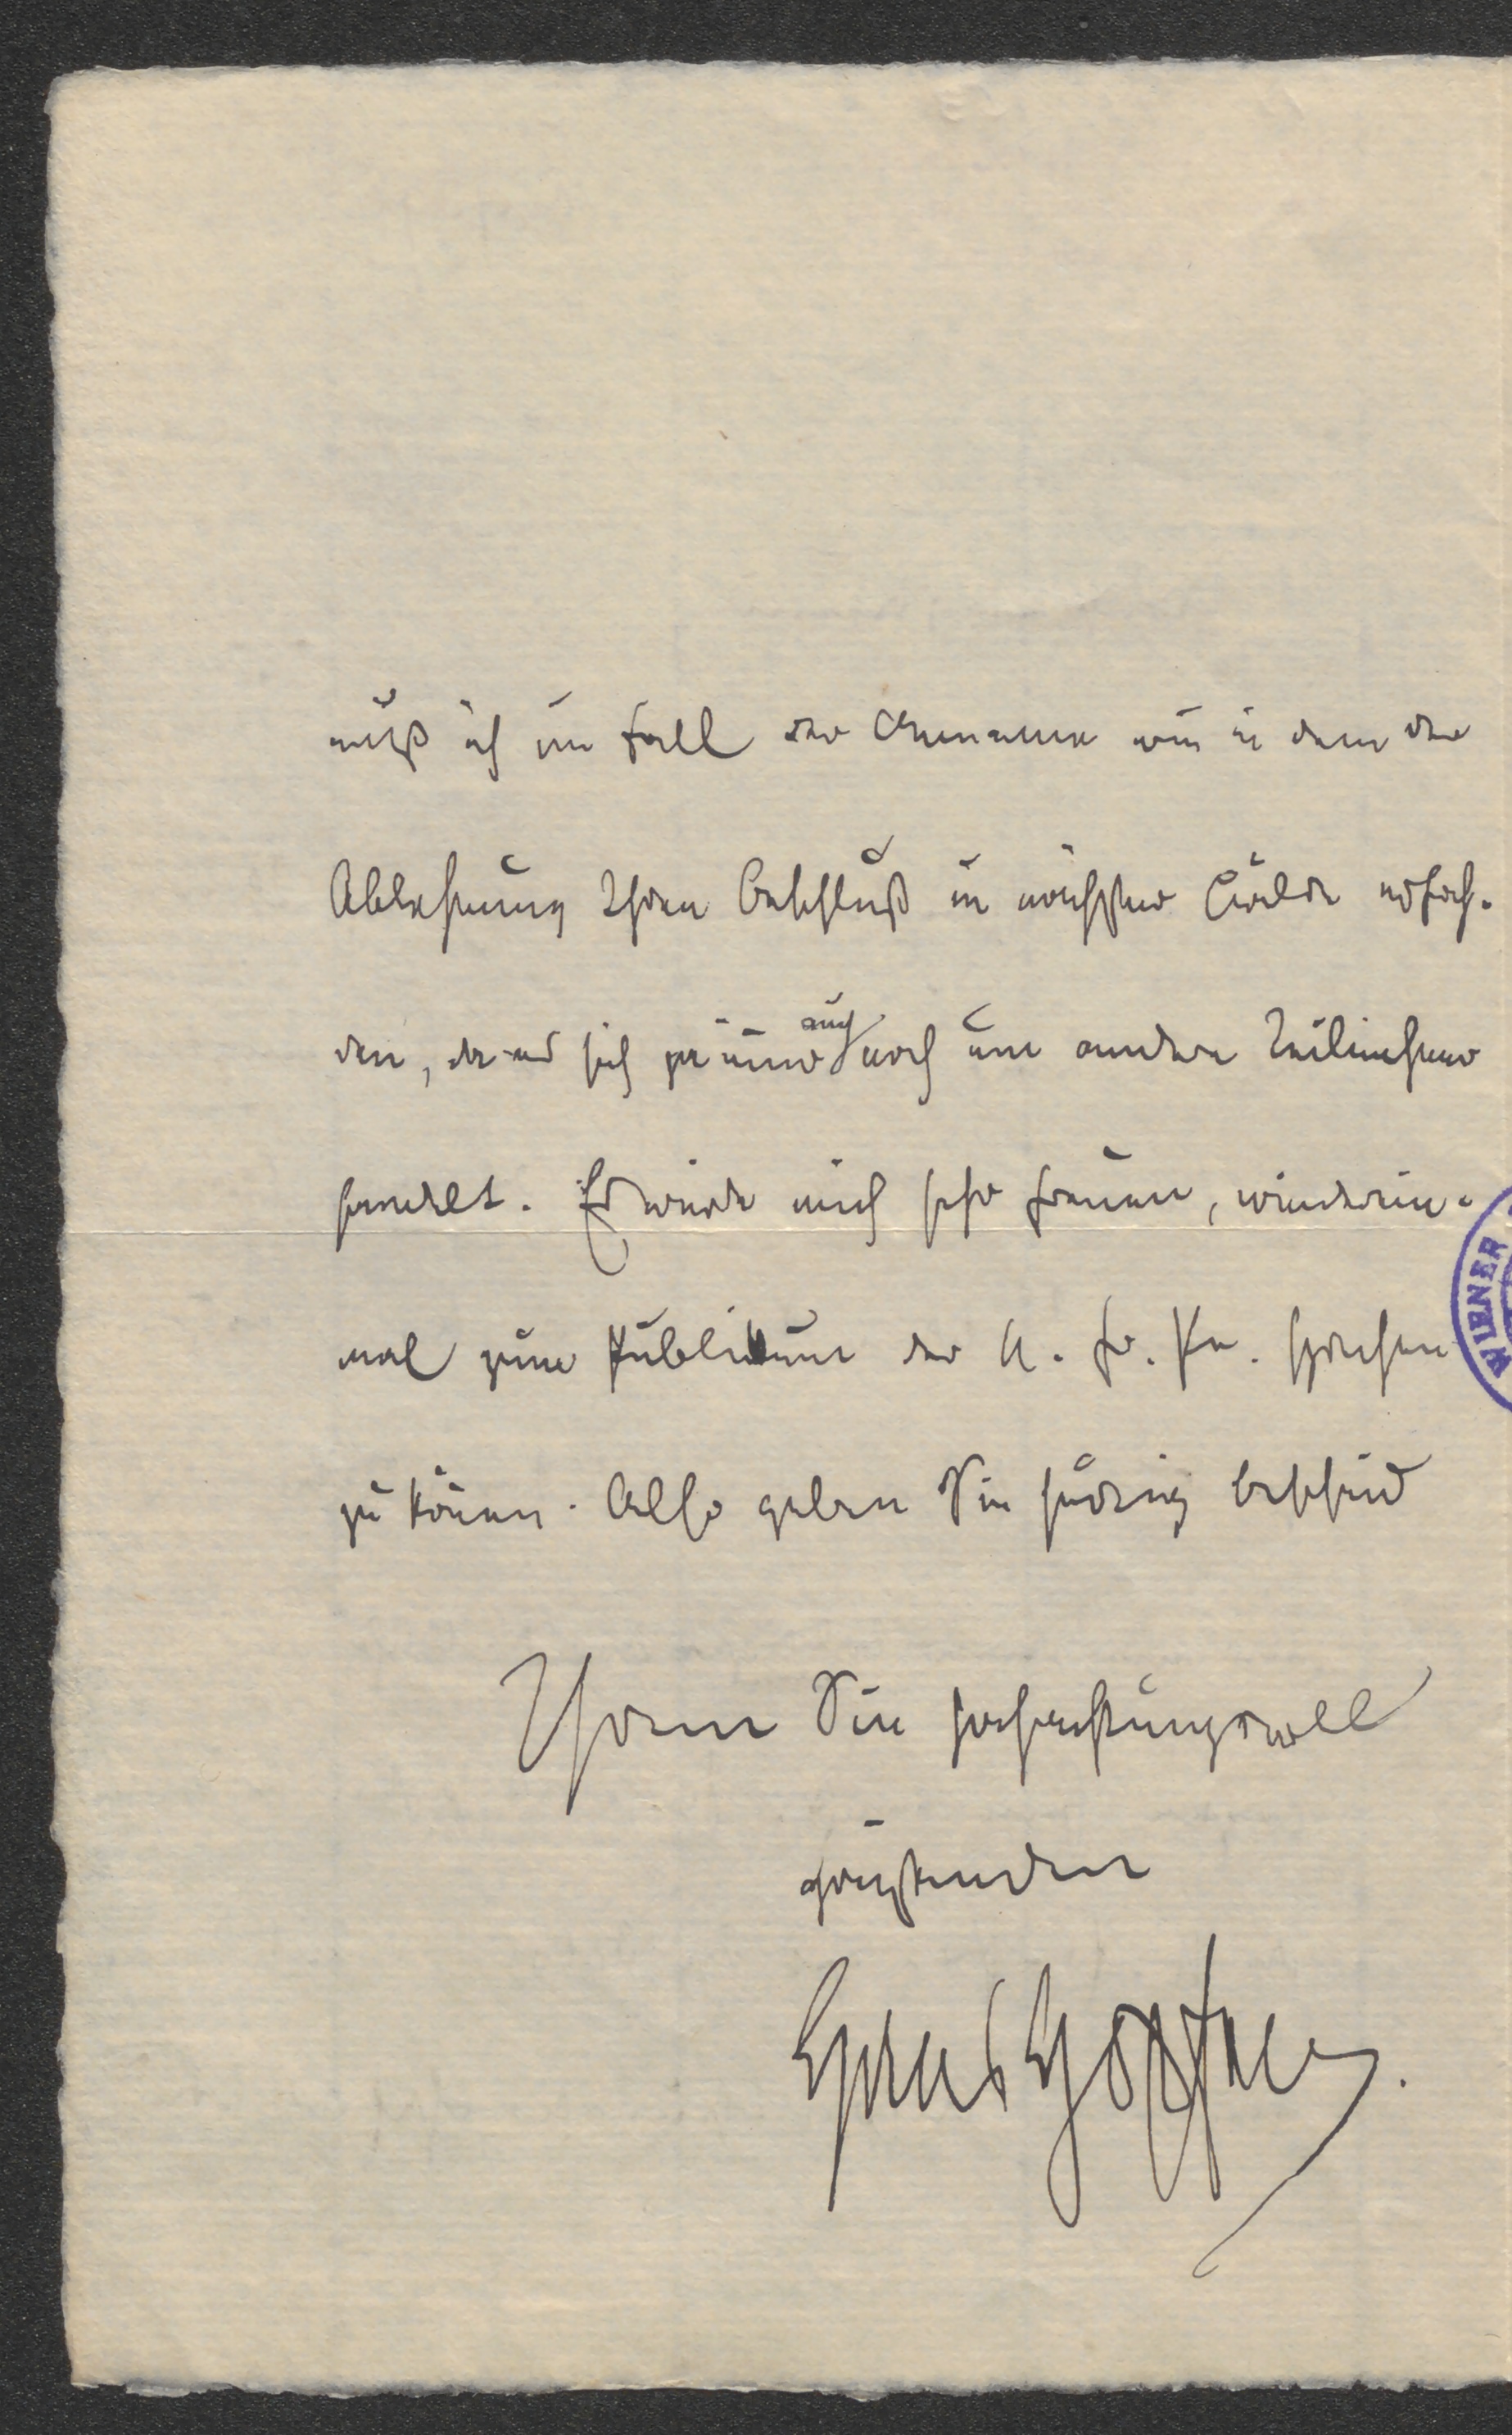 muß ich im Fall der Annahme wie in dem der
Ablehnung Ihren Beschluß in nächster Bälde erfah-
ren, da es sich ja immer auch noch um andere Teilnehmer
handelt. Es würde mich sehr freuen, wiederein-
mal zum Publikum der N. Fr. Pr. sprechen
zu können. Also geben Sie gütig bescheid
Ihrem Sie hochachtungsvoll
grüßenden
WIENER